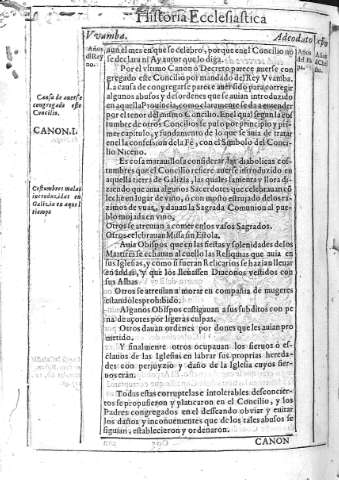 Historia Ecclesiastica
Vvamba. Adeodato
Años del Rey no.
aun el mes en que se celebrò, porque en el Concilio no
se declara ni ay autor que lo diga.
Por el vltimo Canon ò Decreto parece auerse con-
gregado este Concilio por mandado del Rey Vvamba.
La causa de cõgregarse parece auer sido para corregir
algunos abusos y desordenes que se auian introduzido
en aquella Prouincia, como claramente se da a entender
por el tenor del mismo Concilio. En el qual segun la cos
tumbre de otros Concilios se puso por principio y pri-
mer capitulo, y fundamento de lo que se auia de tratar
en el la confession de la Fè, con el Simbolo del Concilio
Niceno.
Causa de auerse
congregado este
Concilio.
CANON.I.
Es cosa marauillosa considerar las diabolicas cos-
tumbres que el Concilio refiere auerse introduzido en
aquella tierra de Galizia, las quales lamenta y llora di-
ziendo que auia algunos Sacerdotes que celebrauan cõ
leche en lugar de vino, ò con mosto estrujado de los ra-
zimos de vuas, y dauan la Sagrada Comunion al pue-
blo mojada en vino.
Costumbres malas
introduzidas en
Galizia en aquel
tiempo
Otros se atreuian a comer en los vasos Sagrados.
Otros celebrauan Missa sin Estola.
Auia Obispos que en las fiestas y solenidades de los
Martires se echauan al cuello las Reliquias que auia en
sus Iglesias, y como si fueran Relicarios se hazian lleuar
en andas, y que los lleuassen Diaconos vestidos con
sus Albas
Otros se atreuian a morar en compañia de mugeres
estandoles prohibido.
Algunos Obispos castigauan a sus subditos con pe
na de açotes por ligeras culpas.
Otros dauan ordenes por dones que les auian pro
metido.
Y finalmente otros ocupauan los sieruos ò es-
clauos de las Iglesias en labrar sus proprias hereda-
des con perjuyzio y daño de la Iglesia cuyos sier-
uos erán.
Todas estas corruptelas e intolerables desconcier-
tos se propusieron y platicaron en el Concilio, y los
Padres congregados en el desseando obviar y euitar
los daños y inconuenientes que de los tales abusos se
siguian, establecieron y ordenaron.
CANON